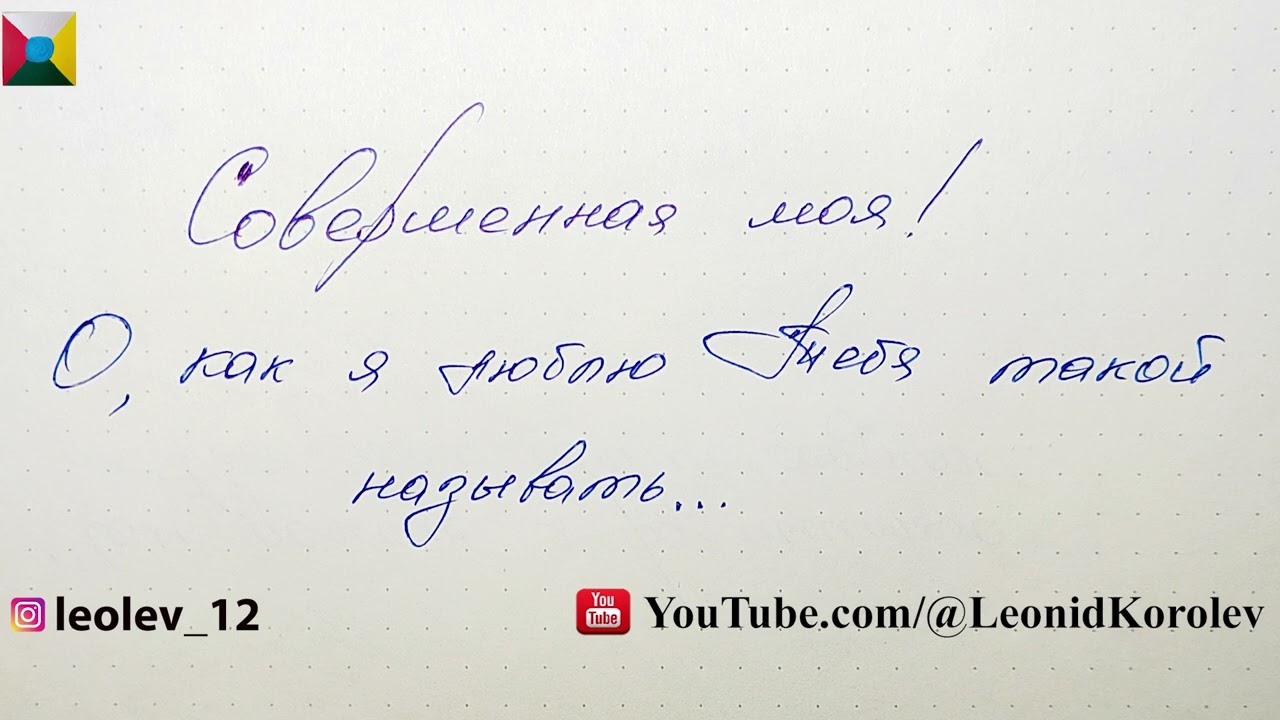 Совершенная моя!
О, как я люблю Тебя такой
называть...
leolev_12
You Tube YouTube.com/@LeonidKorolev